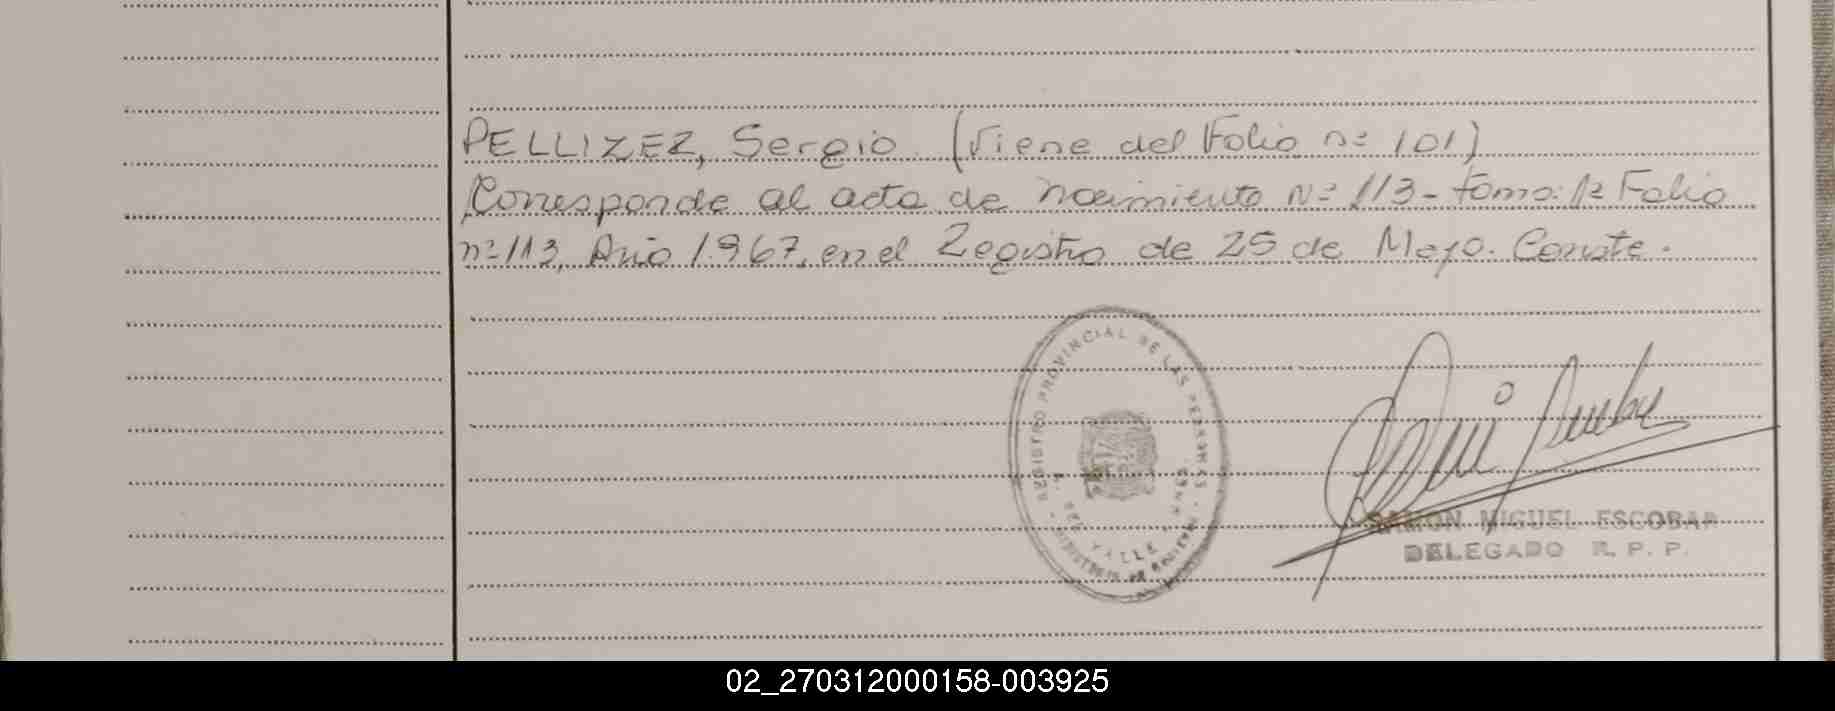 PELLIZEZ, Sergio (Viene del Folio nº 101)
Corresponde al acta de nacimiento Nº 113 - tomo: 1º Folio
nº 113, Año 1.967, en el Registro de 25 de Mayo. Conste.
REGISTRO PROVINCIAL DE LAS PERSONAS
VALLE
RAMON MIGUEL ESCOBAR
DELEGADO R. P. P.
02_270312000158-003925